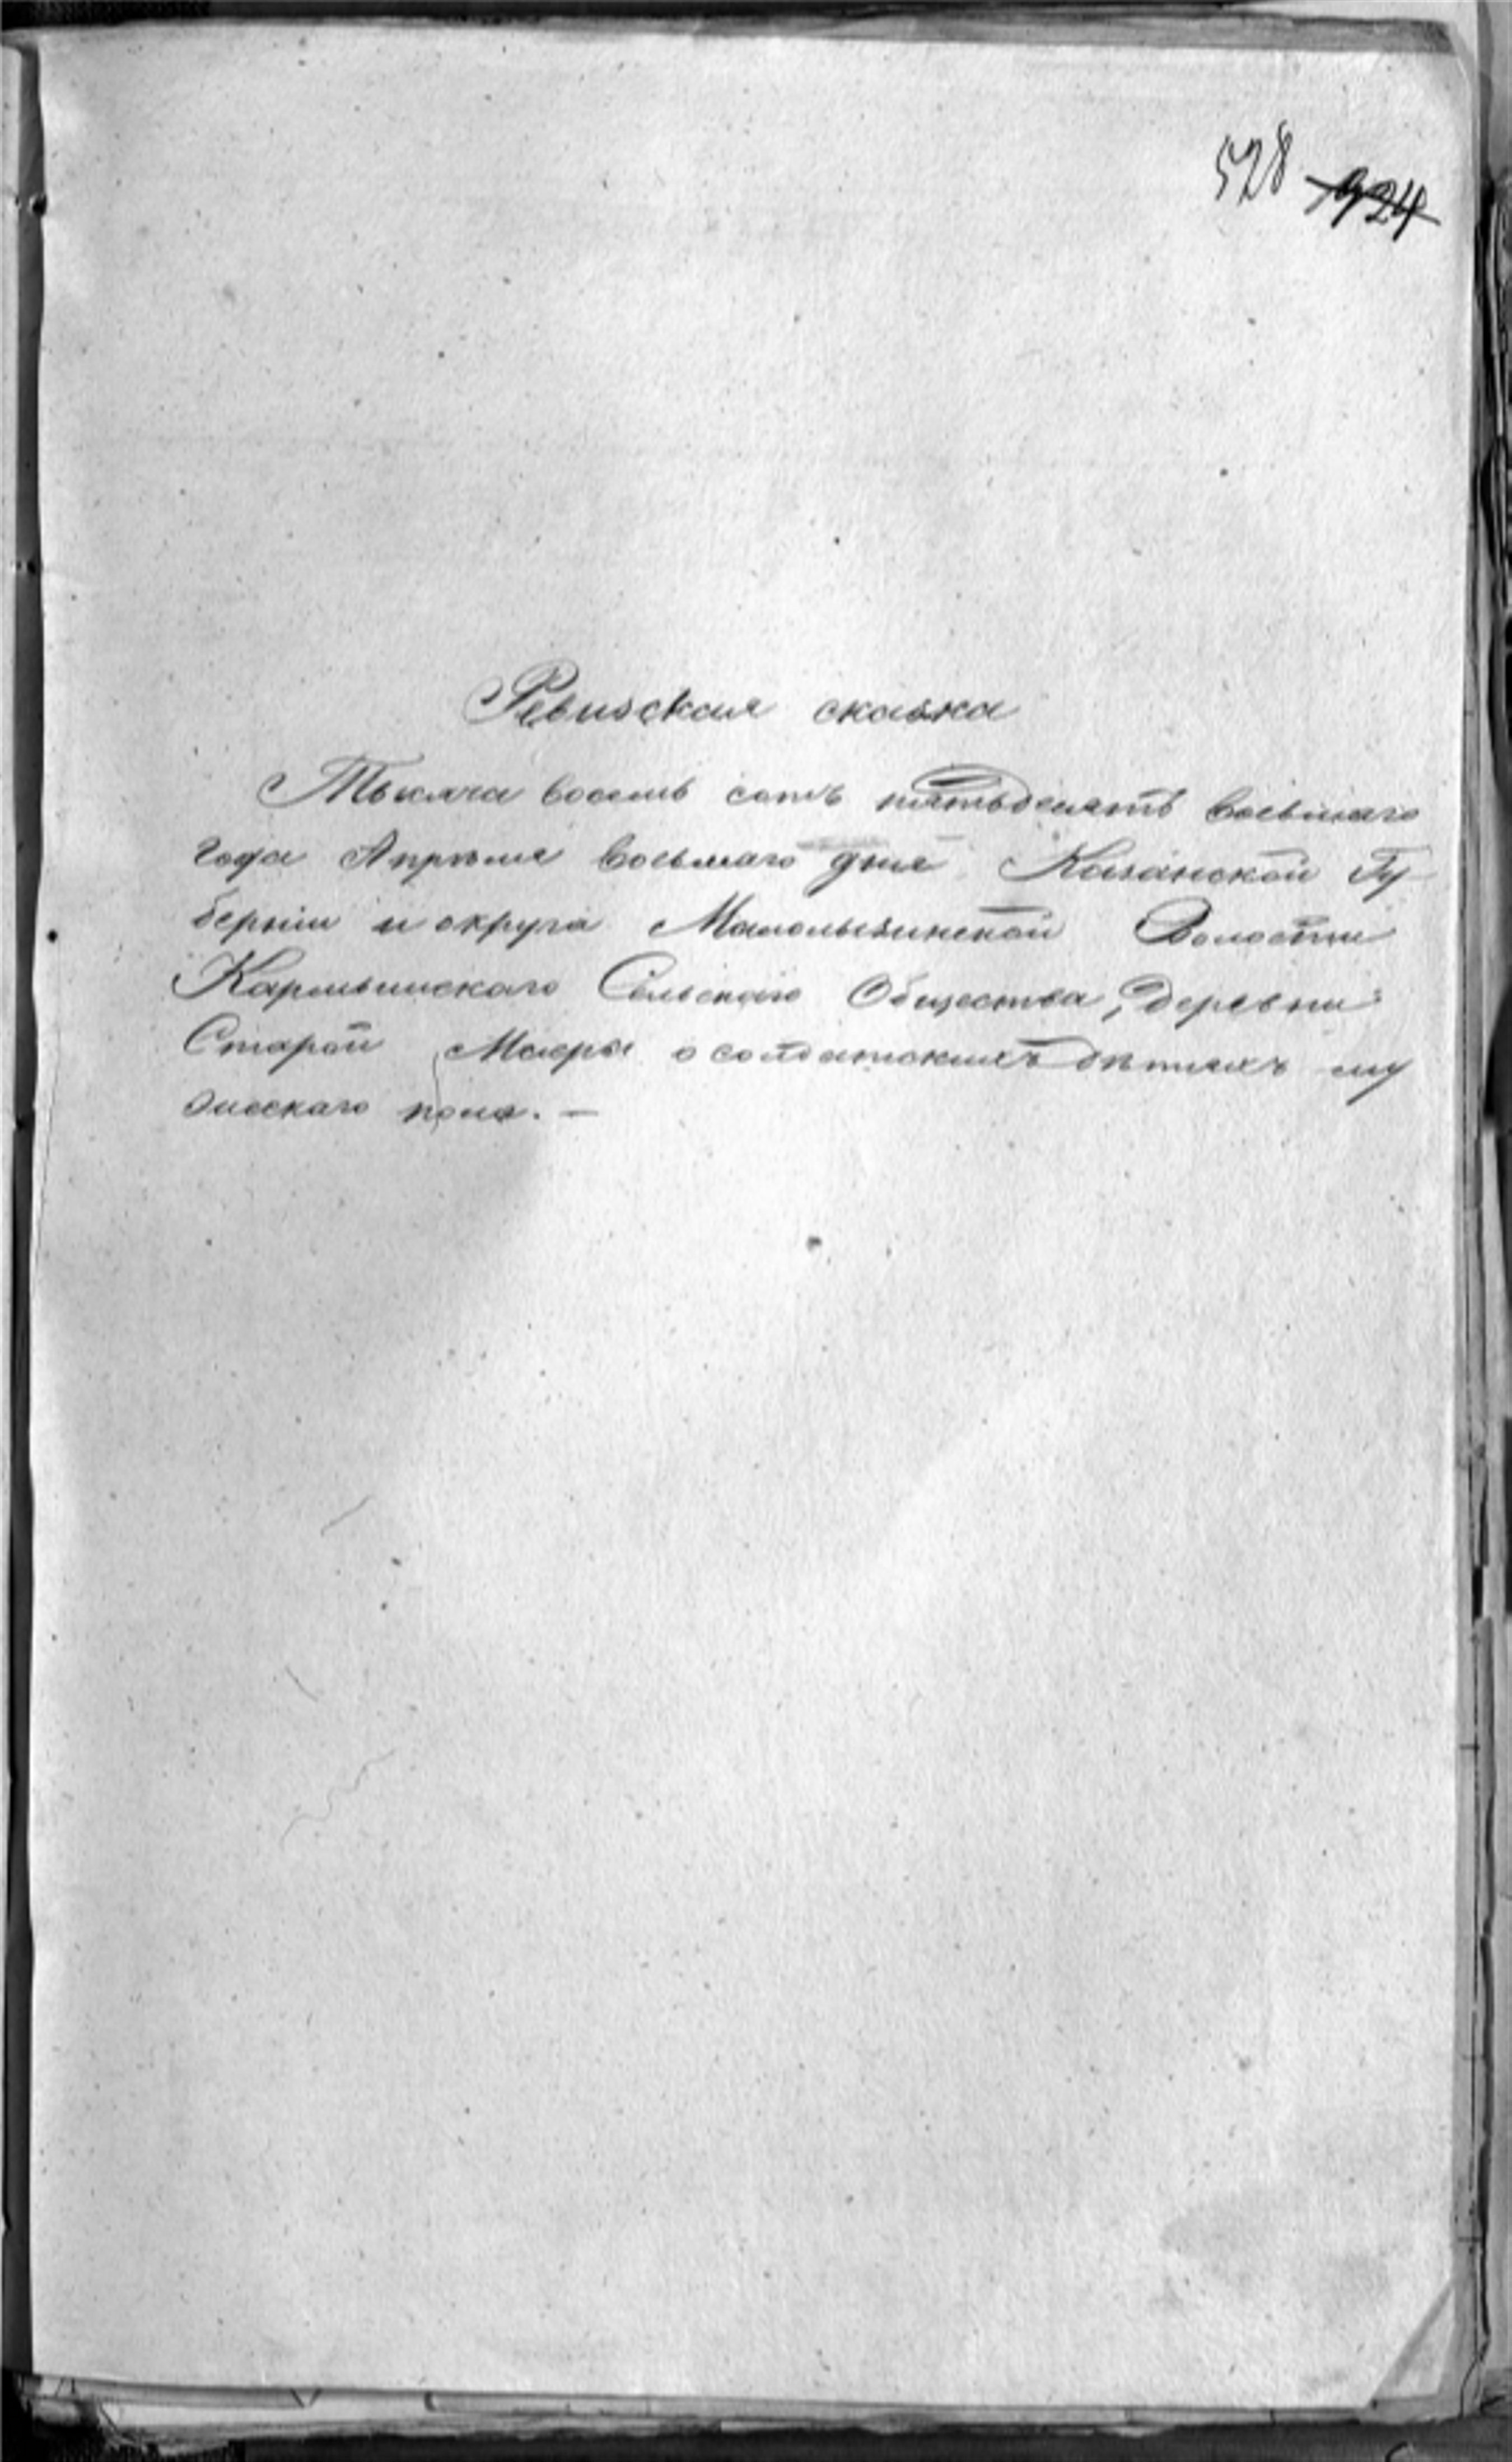 528 924
Ревизская сказка
Тысяча восемь сотъ пятьдесятъ восьмаго
года Апрѣля восьмаго дня Казанской Гу
берніи и округа Мамолызинской Волости
Сельскаго Общества, деревни
Старой о солдатскихъ дѣтяхъ му
жескаго пола. —